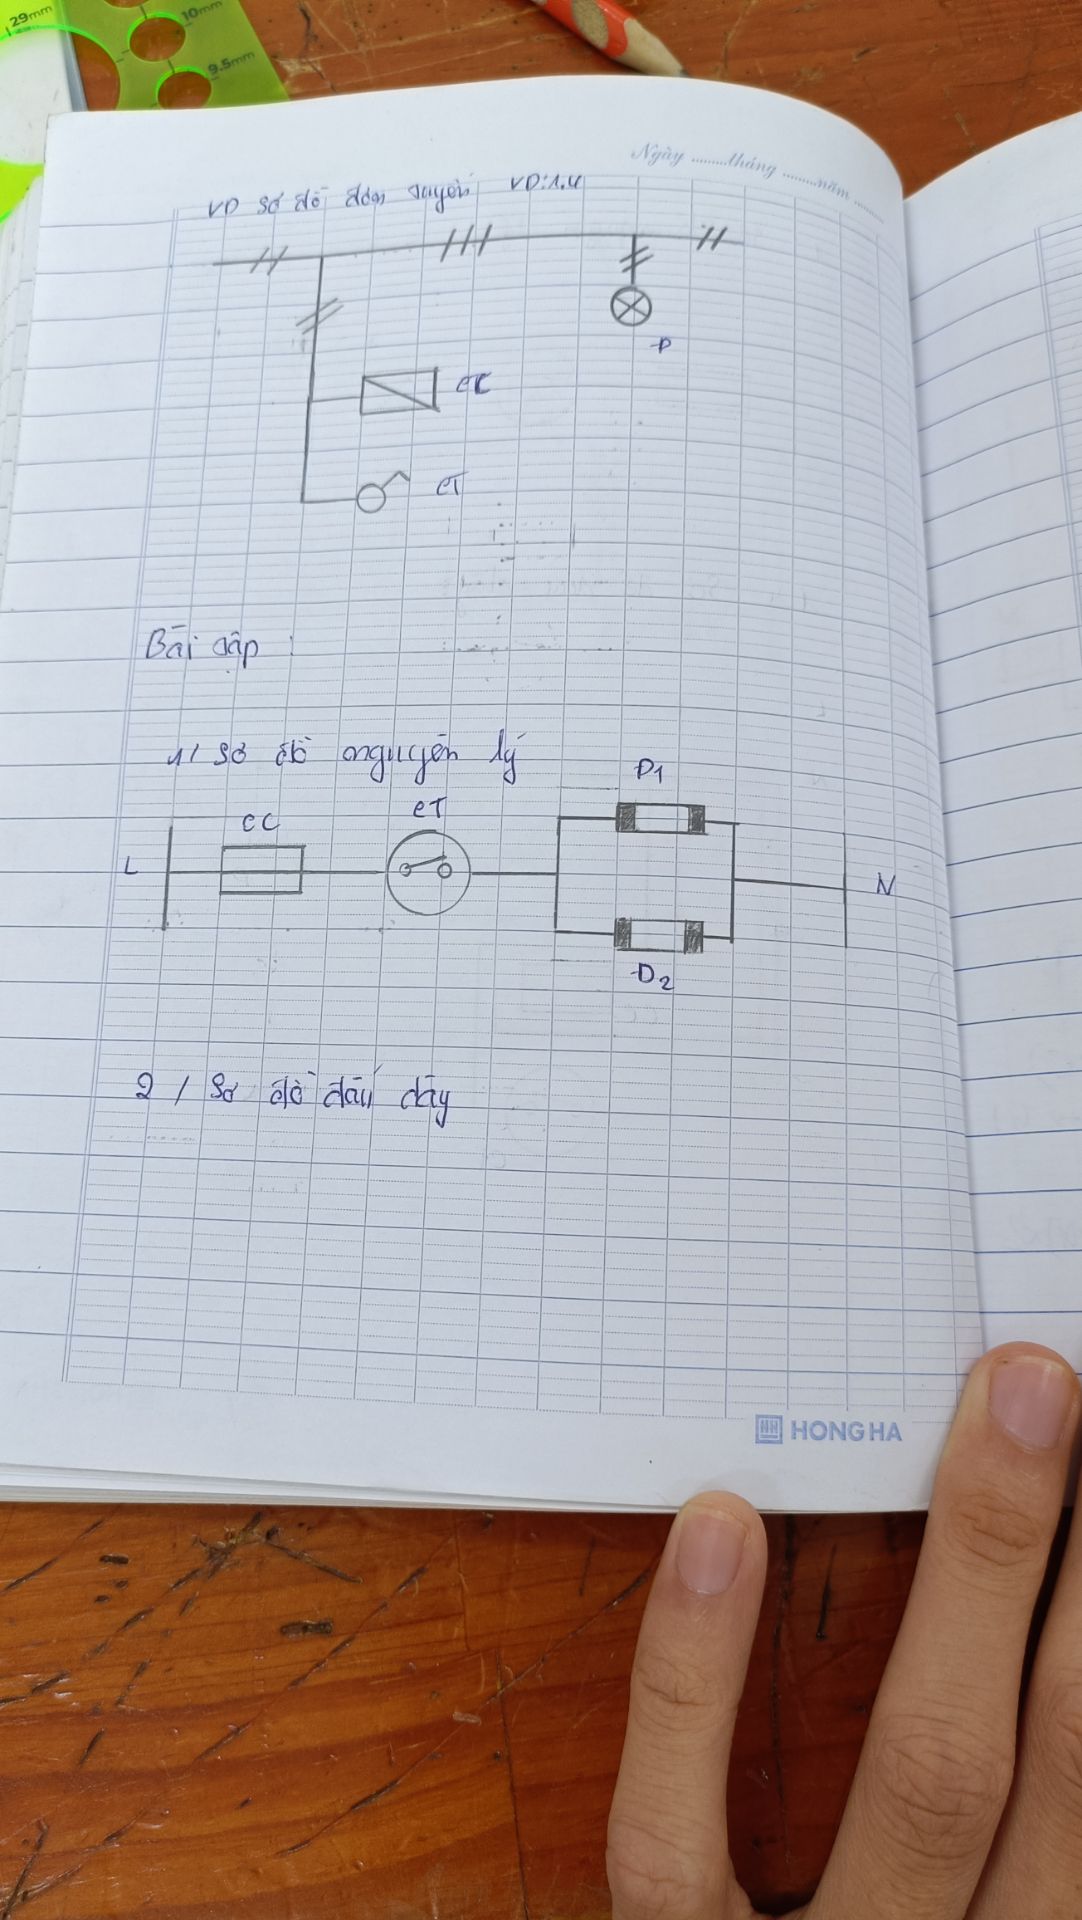 29mm
10mm
9.5mm
Ngày ........tháng ........năm ........
VD sơ đồ đơn tuyến VD:1.4
Đ
CC
CT
Bài tập :
1/ Sơ đồ nguyên lý
Đ1
CC
CT
L
N
Đ2
2 / Sơ đồ đấu dây
HH HONG HA